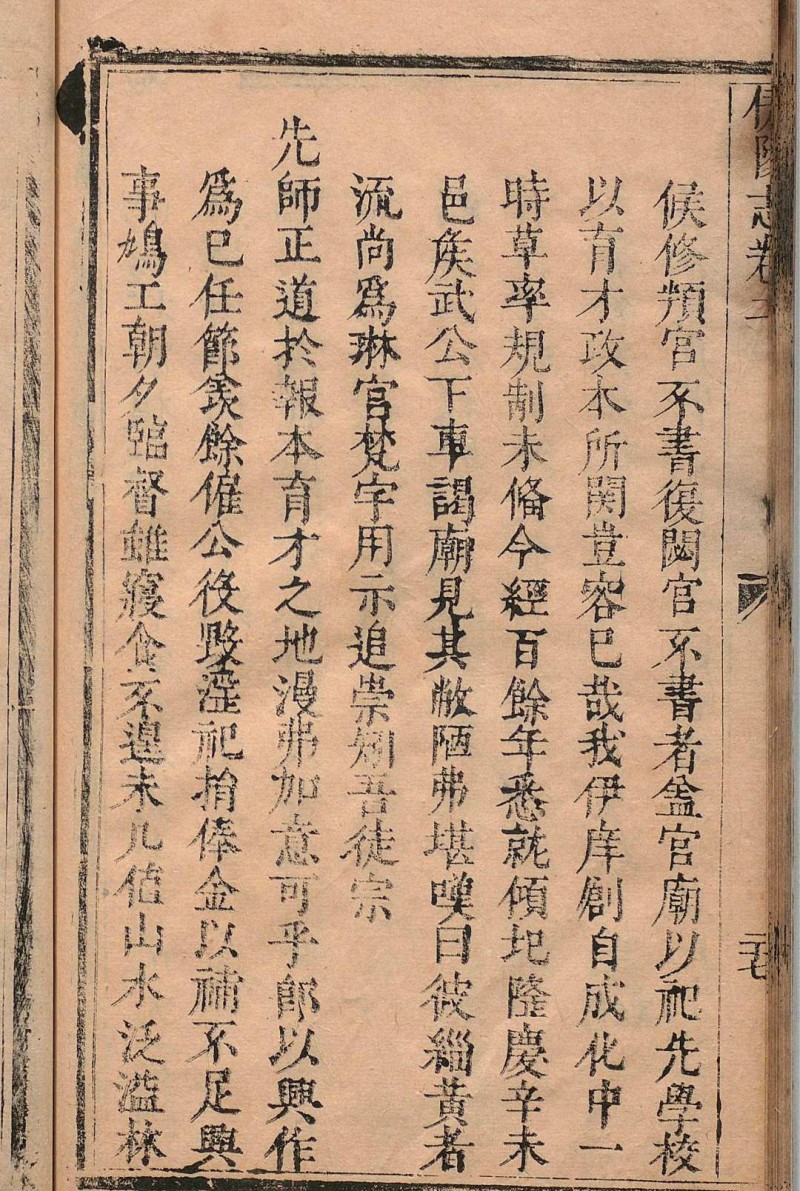 陽志卷
侯修頖宮不書復閟宮不書者盖宮廟以祀先學校
以育才政本所関豈容已哉我伊庠創自成化中一
時草率規制未俻今經百餘年悉就傾圮隆慶辛未
邑矦武公下車謁廟見其敝陋弗堪嘆曰彼緇黃者
流尚爲琳宮梵宇用示追崇矧吾徒宗
先師正道於報本育才之地漫弗加意可乎郎以興作
爲已任節羨餘僱公役毀滛祀捐俸金以補不足興
事鳩工朝夕臨督雖寢食不遑未几值山水泛溢林